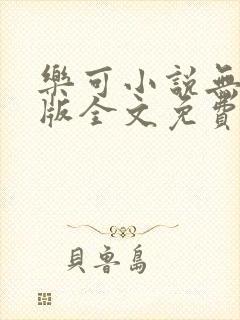 樂可小說無
版全文免費
貝魯島